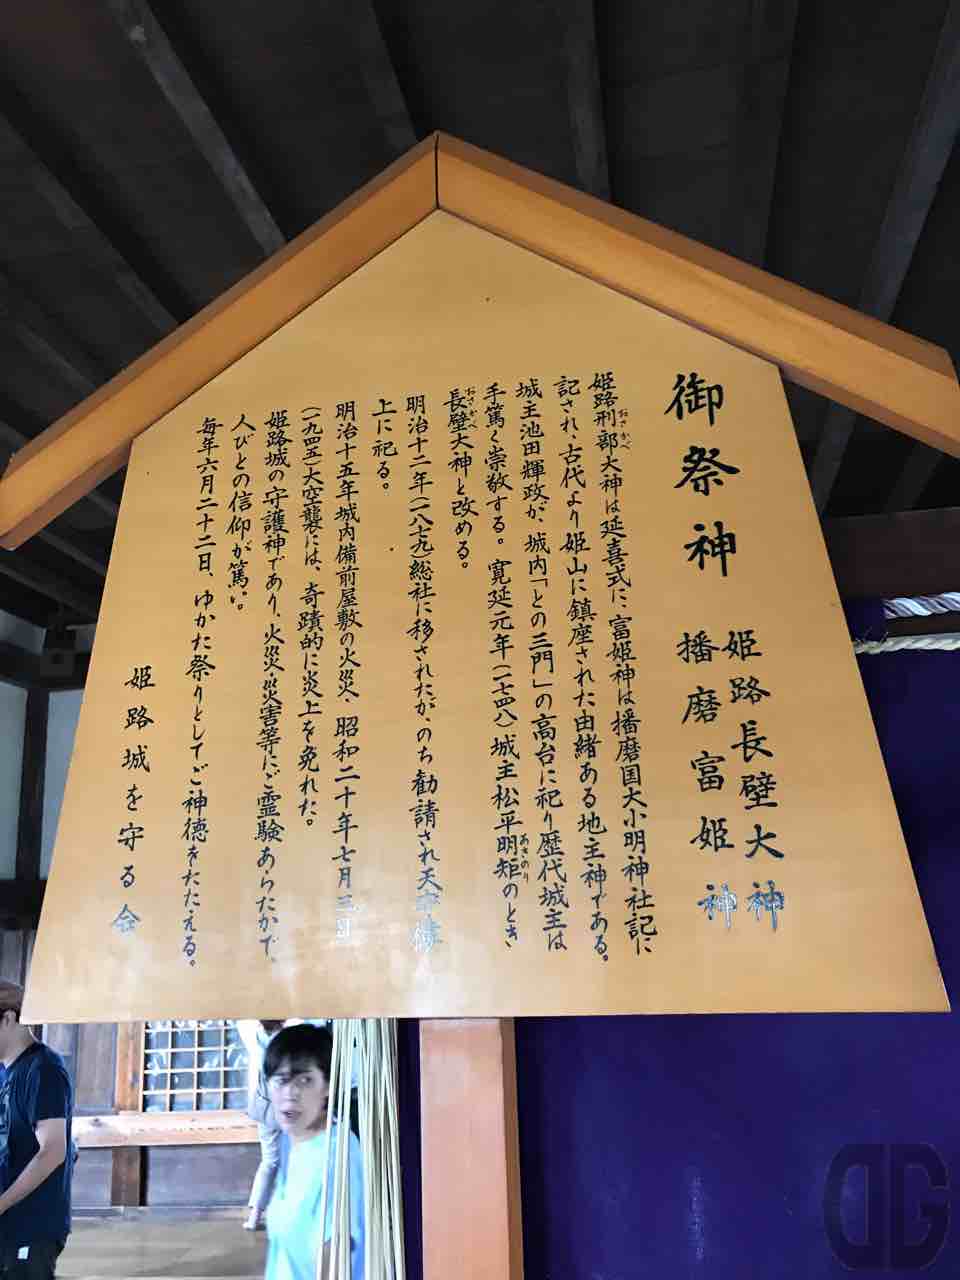 御祭神
姫路長壁大神
播磨富姫神
姫路刑部大神は延喜式に、富姫神は播磨国大小明神社記に
おさかべ
記され、古代より姫山に鎮座された由緒ある地主神である。
城主池田輝政が、城内「との三門」の高台に祀り歴代城主は
手篤く崇敬する。寛延元年(一七四八)城主松平明矩のとき
あきのり
長壁大神と改める。
おさかべ
明治十二年(一八七九)総社に移されたが、のち勧請され天守楼
上に祀る。
明治十五年城内備前屋敷の火災、昭和二十年七月三日
(一九四五)大空襲には、奇蹟的に炎上を免れた。
姫路城の守護神であり、火災・災害等にご霊験あらたかで、
人びとの信仰が篤い。
毎年六月二十二日、ゆかた祭りとしてご神徳をたたえる。
姫路城を守る会
DG